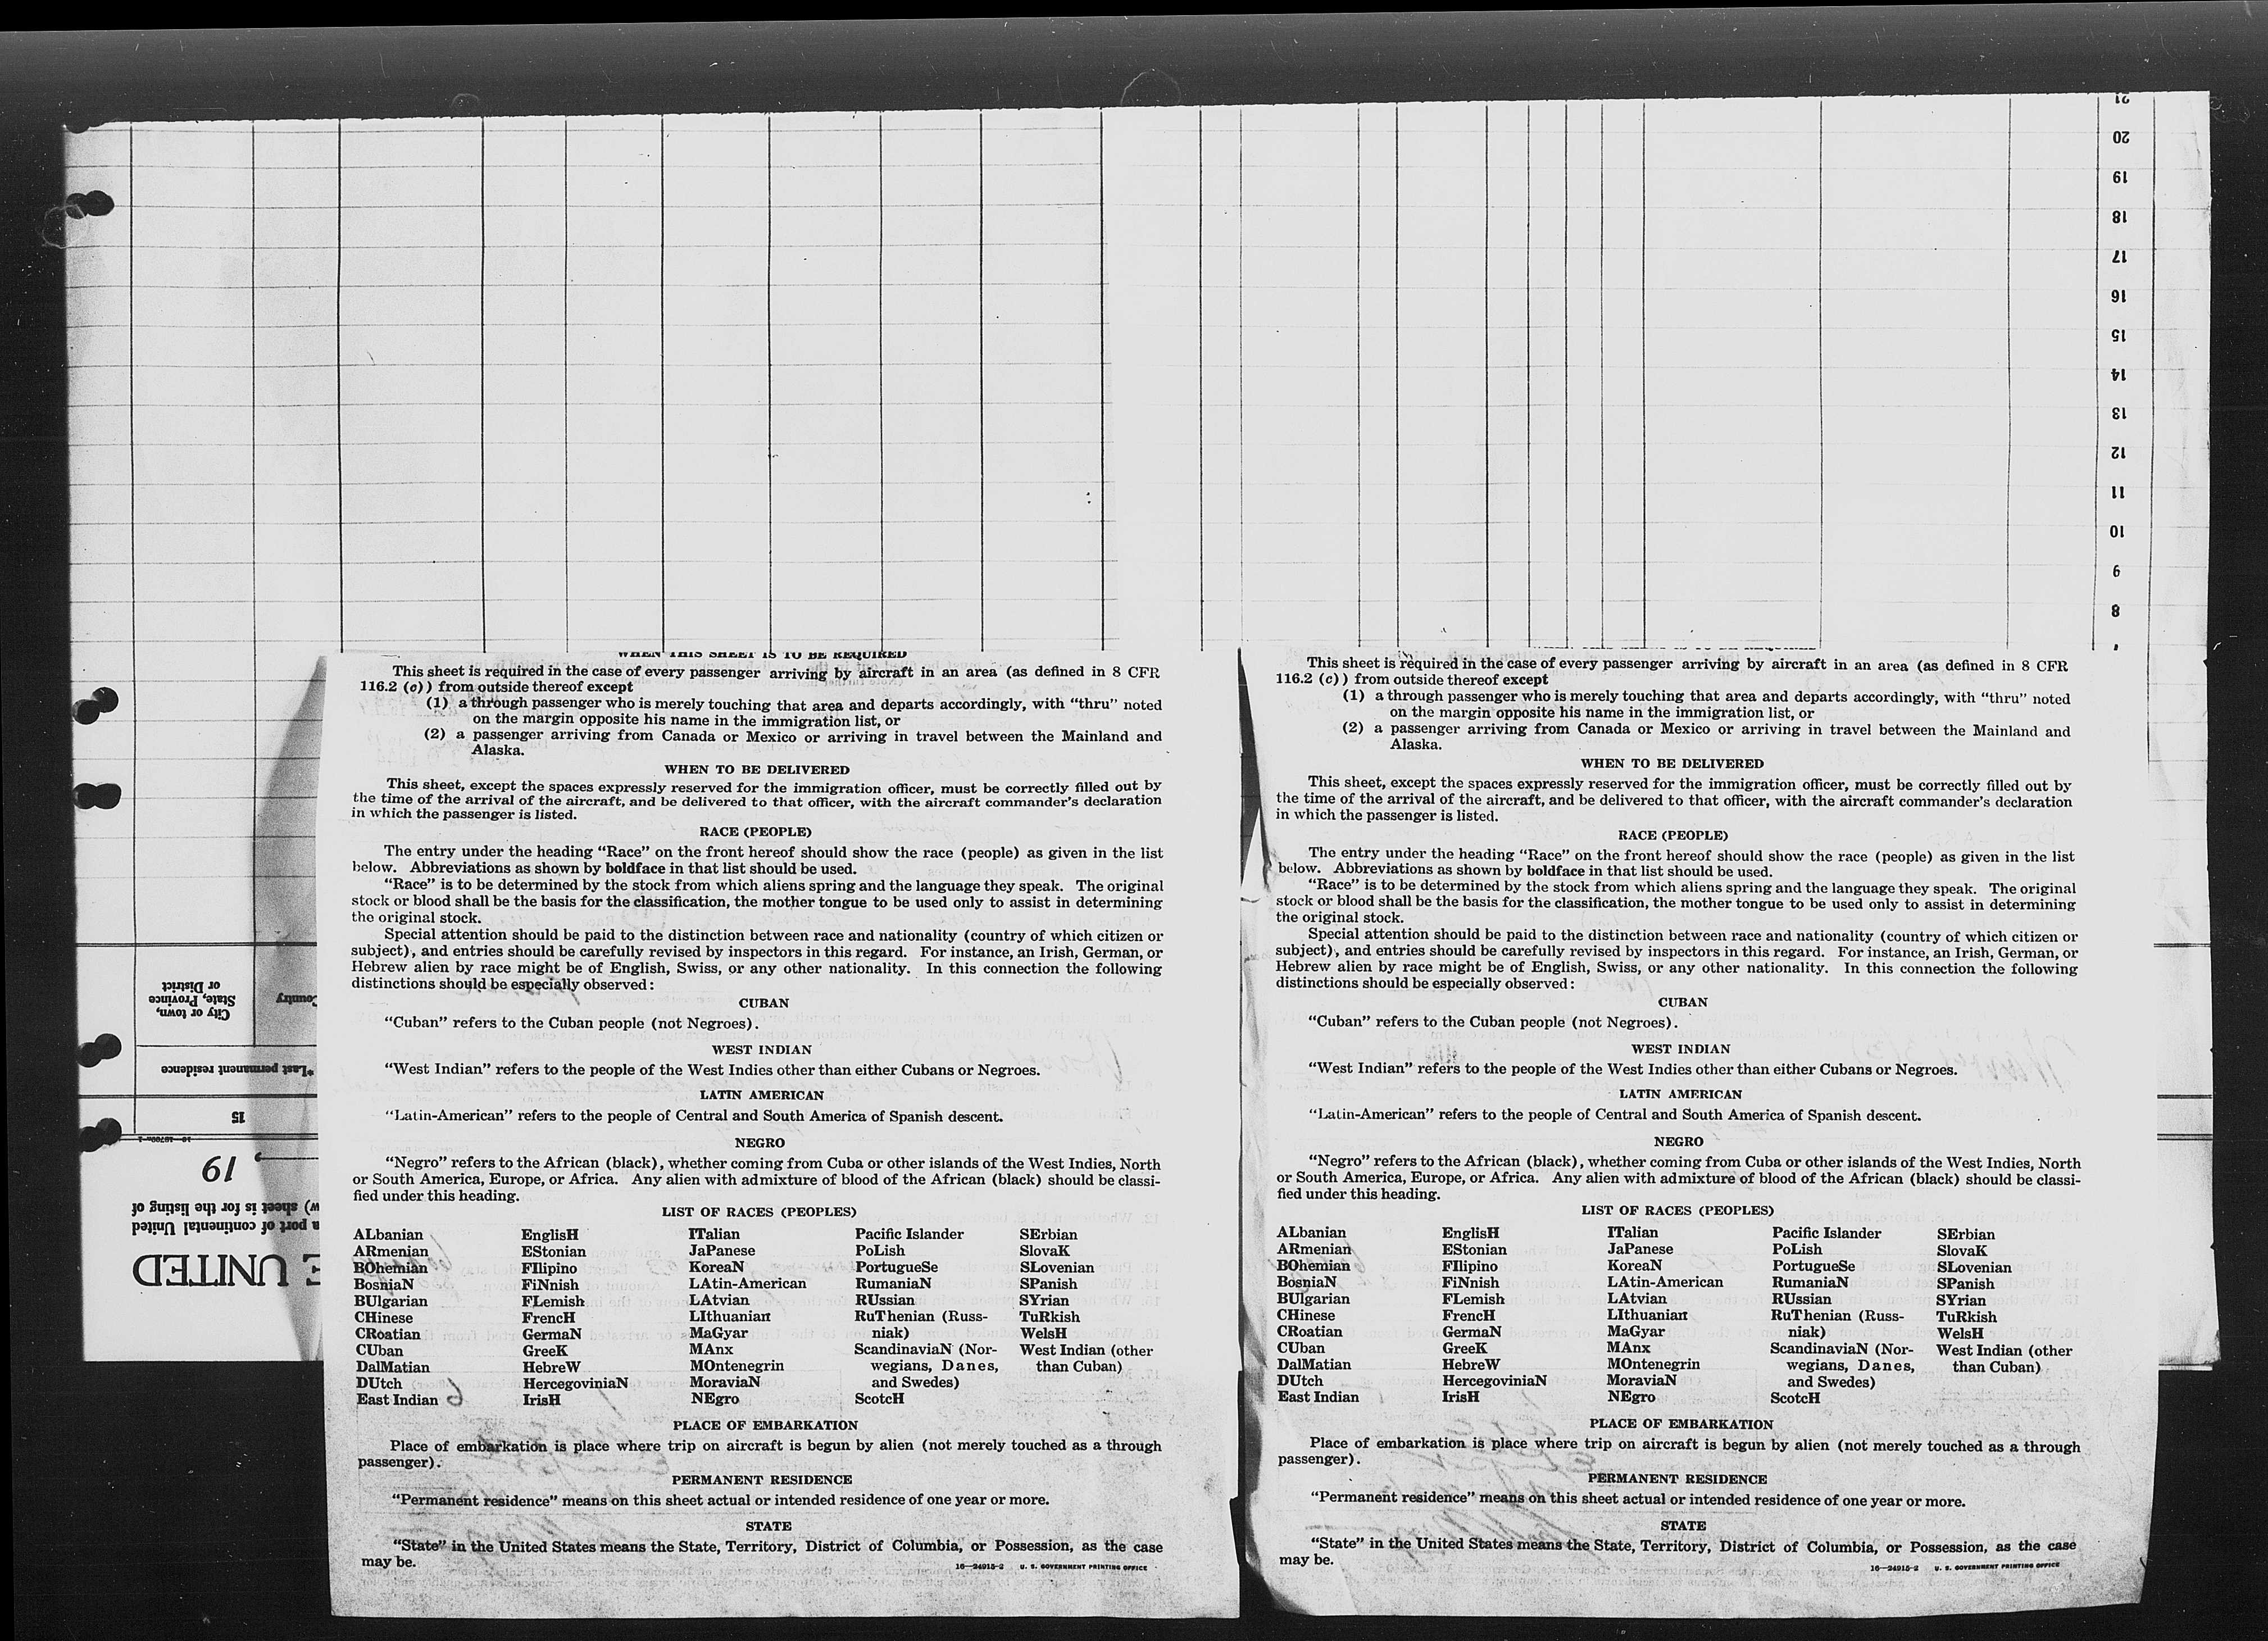 21
20
19
18
17
16
15
14
13
12
11
10
9
8
WHEN THIS SHEET IS TO BE REQUIRED
This sheet is required in the case of every passenger arriving by aircraft in an area (as defined in 8 CFR
116.2 (c)) from outside thereof except
(1) a through passenger who is merely touching that area and departs accordingly, with “thru” noted
on the margin opposite his name in the immigration list, or
(2) a passenger arriving from Canada or Mexico or arriving in travel between the Mainland and
Alaska.
WHEN TO BE DELIVERED
This sheet, except the spaces expressly reserved for the immigration officer, must be correctly filled out by
the time of the arrival of the aircraft, and be delivered to that officer, with the aircraft commander’s declaration
in which the passenger is listed.
RACE (PEOPLE)
The entry under the heading “Race” on the front hereof should show the race (people) as given in the list
below. Abbreviations as shown by boldface in that list should be used.
“Race” is to be determined by the stock from which aliens spring and the language they speak. The original
stock or blood shall be the basis for the classification, the mother tongue to be used only to assist in determining
the original stock.
Special attention should be paid to the distinction between race and nationality (country of which citizen or
subject), and entries should be carefully revised by inspectors in this regard. For instance, an Irish, German, or
Hebrew alien by race might be of English, Swiss, or any other nationality. In this connection the following
distinctions should be especially observed:
CUBAN
“Cuban” refers to the Cuban people (not Negroes).
WEST INDIAN
“West Indian” refers to the people of the West Indies other than either Cubans or Negroes.
LATIN AMERICAN
“Latin-American” refers to the people of Central and South America of Spanish descent.
NEGRO
“Negro” refers to the African (black), whether coming from Cuba or other islands of the West Indies, North
or South America, Europe, or Africa. Any alien with admixture of blood of the African (black) should be classi-
fied under this heading.
LIST OF RACES (PEOPLES)
ALbanian EnglisH ITalian Pacific Islander SErbian
ARmenian EStonian JaPanese PoLish SlovaK
BOhemian FIlipino KoreaN PortugueSe SLovenian
BosniaN FiNnish LAtin-American RumaniaN SPanish
BUlgarian FLemish LAtvian RUssian SYrian
CHinese FrencH LIthuanian RuThenian (Russ- TuRkish
CRoatian GermaN MaGyar niak) WelsH
CUban GreeK MAnx ScandinaviaN (Nor- West Indian (other
DalMatian HebreW MOntenegrin wegians, Danes, than Cuban)
DUtch HercegoviniaN MoraviaN and Swedes)
East Indian IrisH NEgro ScotcH
PLACE OF EMBARKATION
Place of embarkation is place where trip on aircraft is begun by alien (not merely touched as a through
passenger).
PERMANENT RESIDENCE
“Permanent residence” means on this sheet actual or intended residence of one year or more.
STATE
“State” in the United States means the State, Territory, District of Columbia, or Possession, as the case
may be.
16—24915-2 U. S. GOVERNMENT PRINTING OFFICE
This sheet is required in the case of every passenger arriving by aircraft in an area (as defined in 8 CFR
116.2 (c)) from outside thereof except
(1) a through passenger who is merely touching that area and departs accordingly, with “thru” noted
on the margin opposite his name in the immigration list, or
(2) a passenger arriving from Canada or Mexico or arriving in travel between the Mainland and
Alaska.
WHEN TO BE DELIVERED
This sheet, except the spaces expressly reserved for the immigration officer, must be correctly filled out by
the time of the arrival of the aircraft, and be delivered to that officer, with the aircraft commander’s declaration
in which the passenger is listed.
RACE (PEOPLE)
The entry under the heading “Race” on the front hereof should show the race (people) as given in the list
below. Abbreviations as shown by boldface in that list should be used.
“Race” is to be determined by the stock from which aliens spring and the language they speak. The original
stock or blood shall be the basis for the classification, the mother tongue to be used only to assist in determining
the original stock.
Special attention should be paid to the distinction between race and nationality (country of which citizen or
subject), and entries should be carefully revised by inspectors in this regard. For instance, an Irish, German, or
Hebrew alien by race might be of English, Swiss, or any other nationality. In this connection the following
distinctions should be especially observed:
CUBAN
“Cuban” refers to the Cuban people (not Negroes).
WEST INDIAN
“West Indian” refers to the people of the West Indies other than either Cubans or Negroes.
LATIN AMERICAN
“Latin-American” refers to the people of Central and South America of Spanish descent.
NEGRO
“Negro” refers to the African (black), whether coming from Cuba or other islands of the West Indies, North
or South America, Europe, or Africa. Any alien with admixture of blood of the African (black) should be classi-
fied under this heading.
LIST OF RACES (PEOPLES)
ALbanian EnglisH ITalian Pacific Islander SErbian
ARmenian EStonian JaPanese PoLish SlovaK
BOhemian FIlipino KoreaN PortugueSe SLovenian
BosniaN FiNnish LAtin-American RumaniaN SPanish
BUlgarian FLemish LAtvian RUssian SYrian
CHinese FrencH LIthuanian RuThenian (Russ- TuRkish
CRoatian GermaN MaGyar niak) WelsH
CUban GreeK MAnx ScandinaviaN (Nor- West Indian (other
DalMatian HebreW MOntenegrin wegians, Danes, than Cuban)
DUtch HercegoviniaN MoraviaN and Swedes)
East Indian IrisH NEgro ScotcH
PLACE OF EMBARKATION
Place of embarkation is place where trip on aircraft is begun by alien (not merely touched as a through
passenger).
PERMANENT RESIDENCE
“Permanent residence” means on this sheet actual or intended residence of one year or more.
STATE
“State” in the United States means the State, Territory, District of Columbia, or Possession, as the case
may be.
16—24915-2 U. S. GOVERNMENT PRINTING OFFICE
E UNITED
a port of continental United
w) sheet is for the listing of
, 19
15
*Last permanent residence
Country
City or town,
State, Province
or District